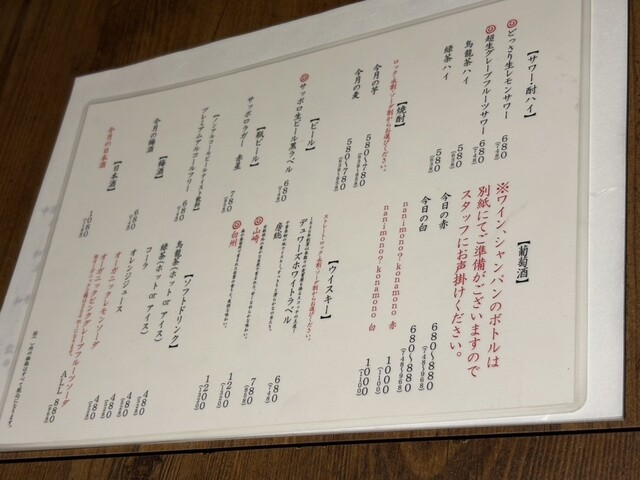 【サワー・酎ハイ】
どっさり生レモンサワー 680
(748)
超生グレープフルーツサワー 680
(748)
烏龍茶ハイ 580
緑茶ハイ 580
【焼酎】
ロック・水割・ソーダ割からお選びください。
今月の芋 580〜780
今月の麦 580〜780
【ビール】
サッポロ生ビール黒ラベル 680
【瓶ビール】
サッポロラガー 赤星 780
【ノンアルコールビールテイスト飲料】
プレミアムアルコールフリー 680
【梅酒】
今月の梅酒 680
【日本酒】
今月の日本酒 1080
【葡萄酒】
※ワイン、シャンパンのボトルは
別紙にてご準備がございますので
スタッフにお声掛けください。
今日の赤 680〜880
(748〜968)
今日の白 680〜880
(748〜968)
nanimono?・konamono 赤 1000
(1100)
nanimono?・konamono 白 1000
(1100)
【ウイスキー】
ストレート・ロック・水割・ソーダ割からお選びください。
デュワーズホワイトラベル 680
唐銃 780
山崎 1200
白州 1200
【ソフトドリンク】
烏龍茶(ホット or アイス) 480
緑茶(ホット or アイス) 480
コーラ 480
オレンジジュース 480
オーガニックレモンソーダ
オーガニックピンクグレープフルーツソーダ
ALL 880